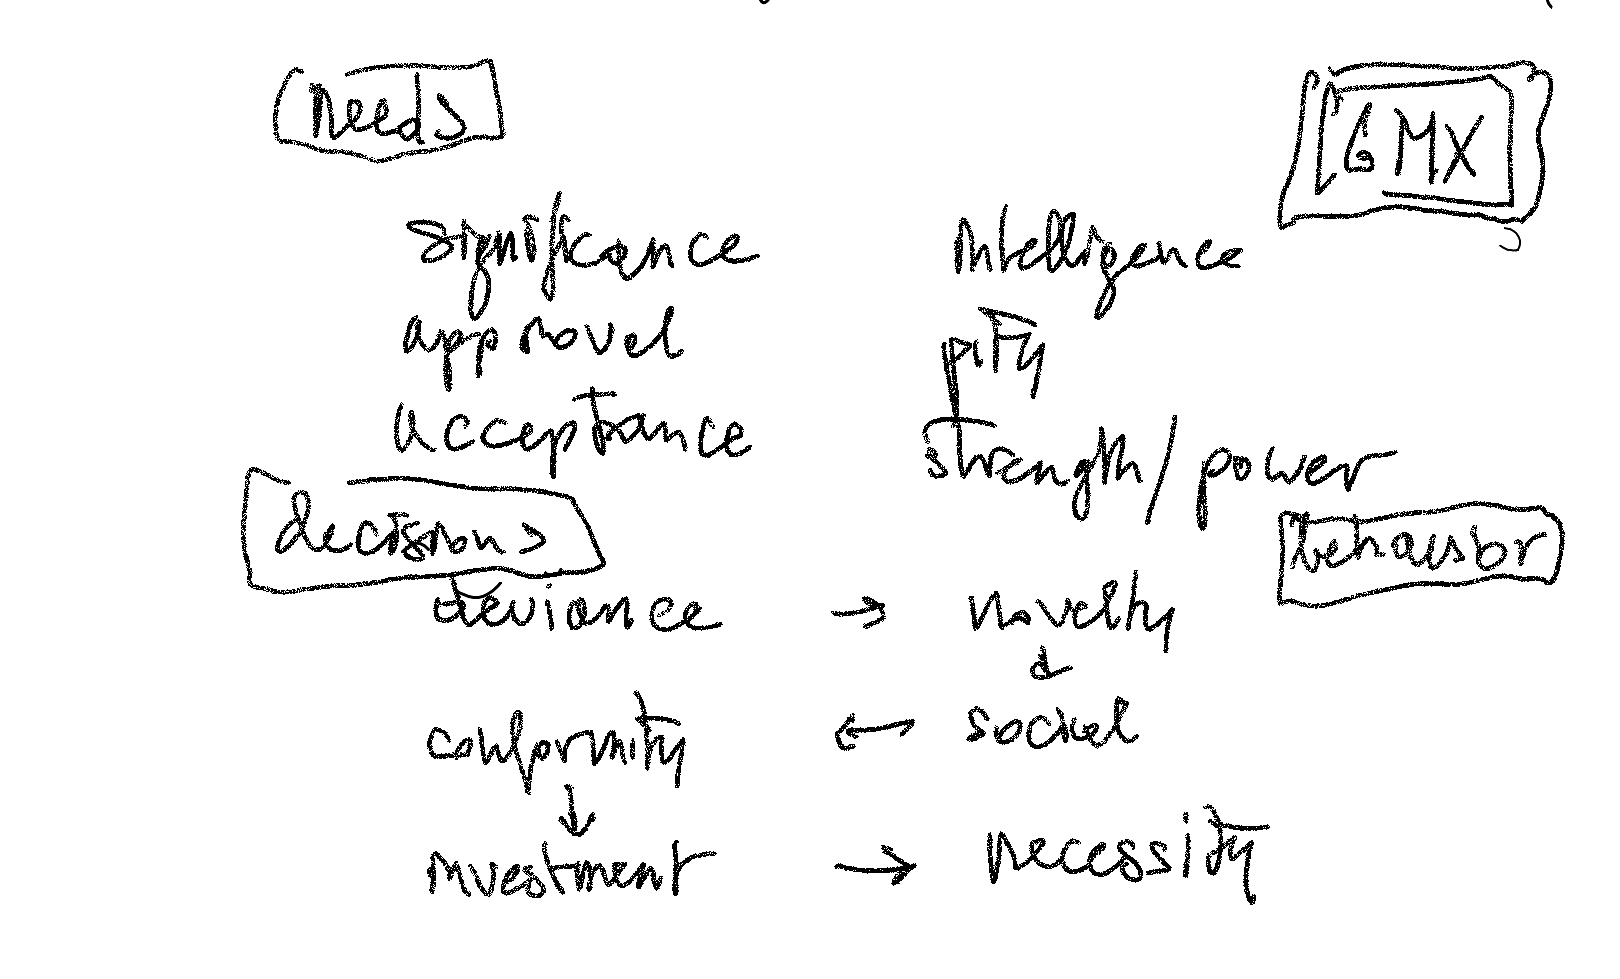 needs
6MX
significance intelligence
approvel pity
acceptance strength/power
decisions behavior
deviance → novelty
↓
conformity ← social
↓
investment → necessity